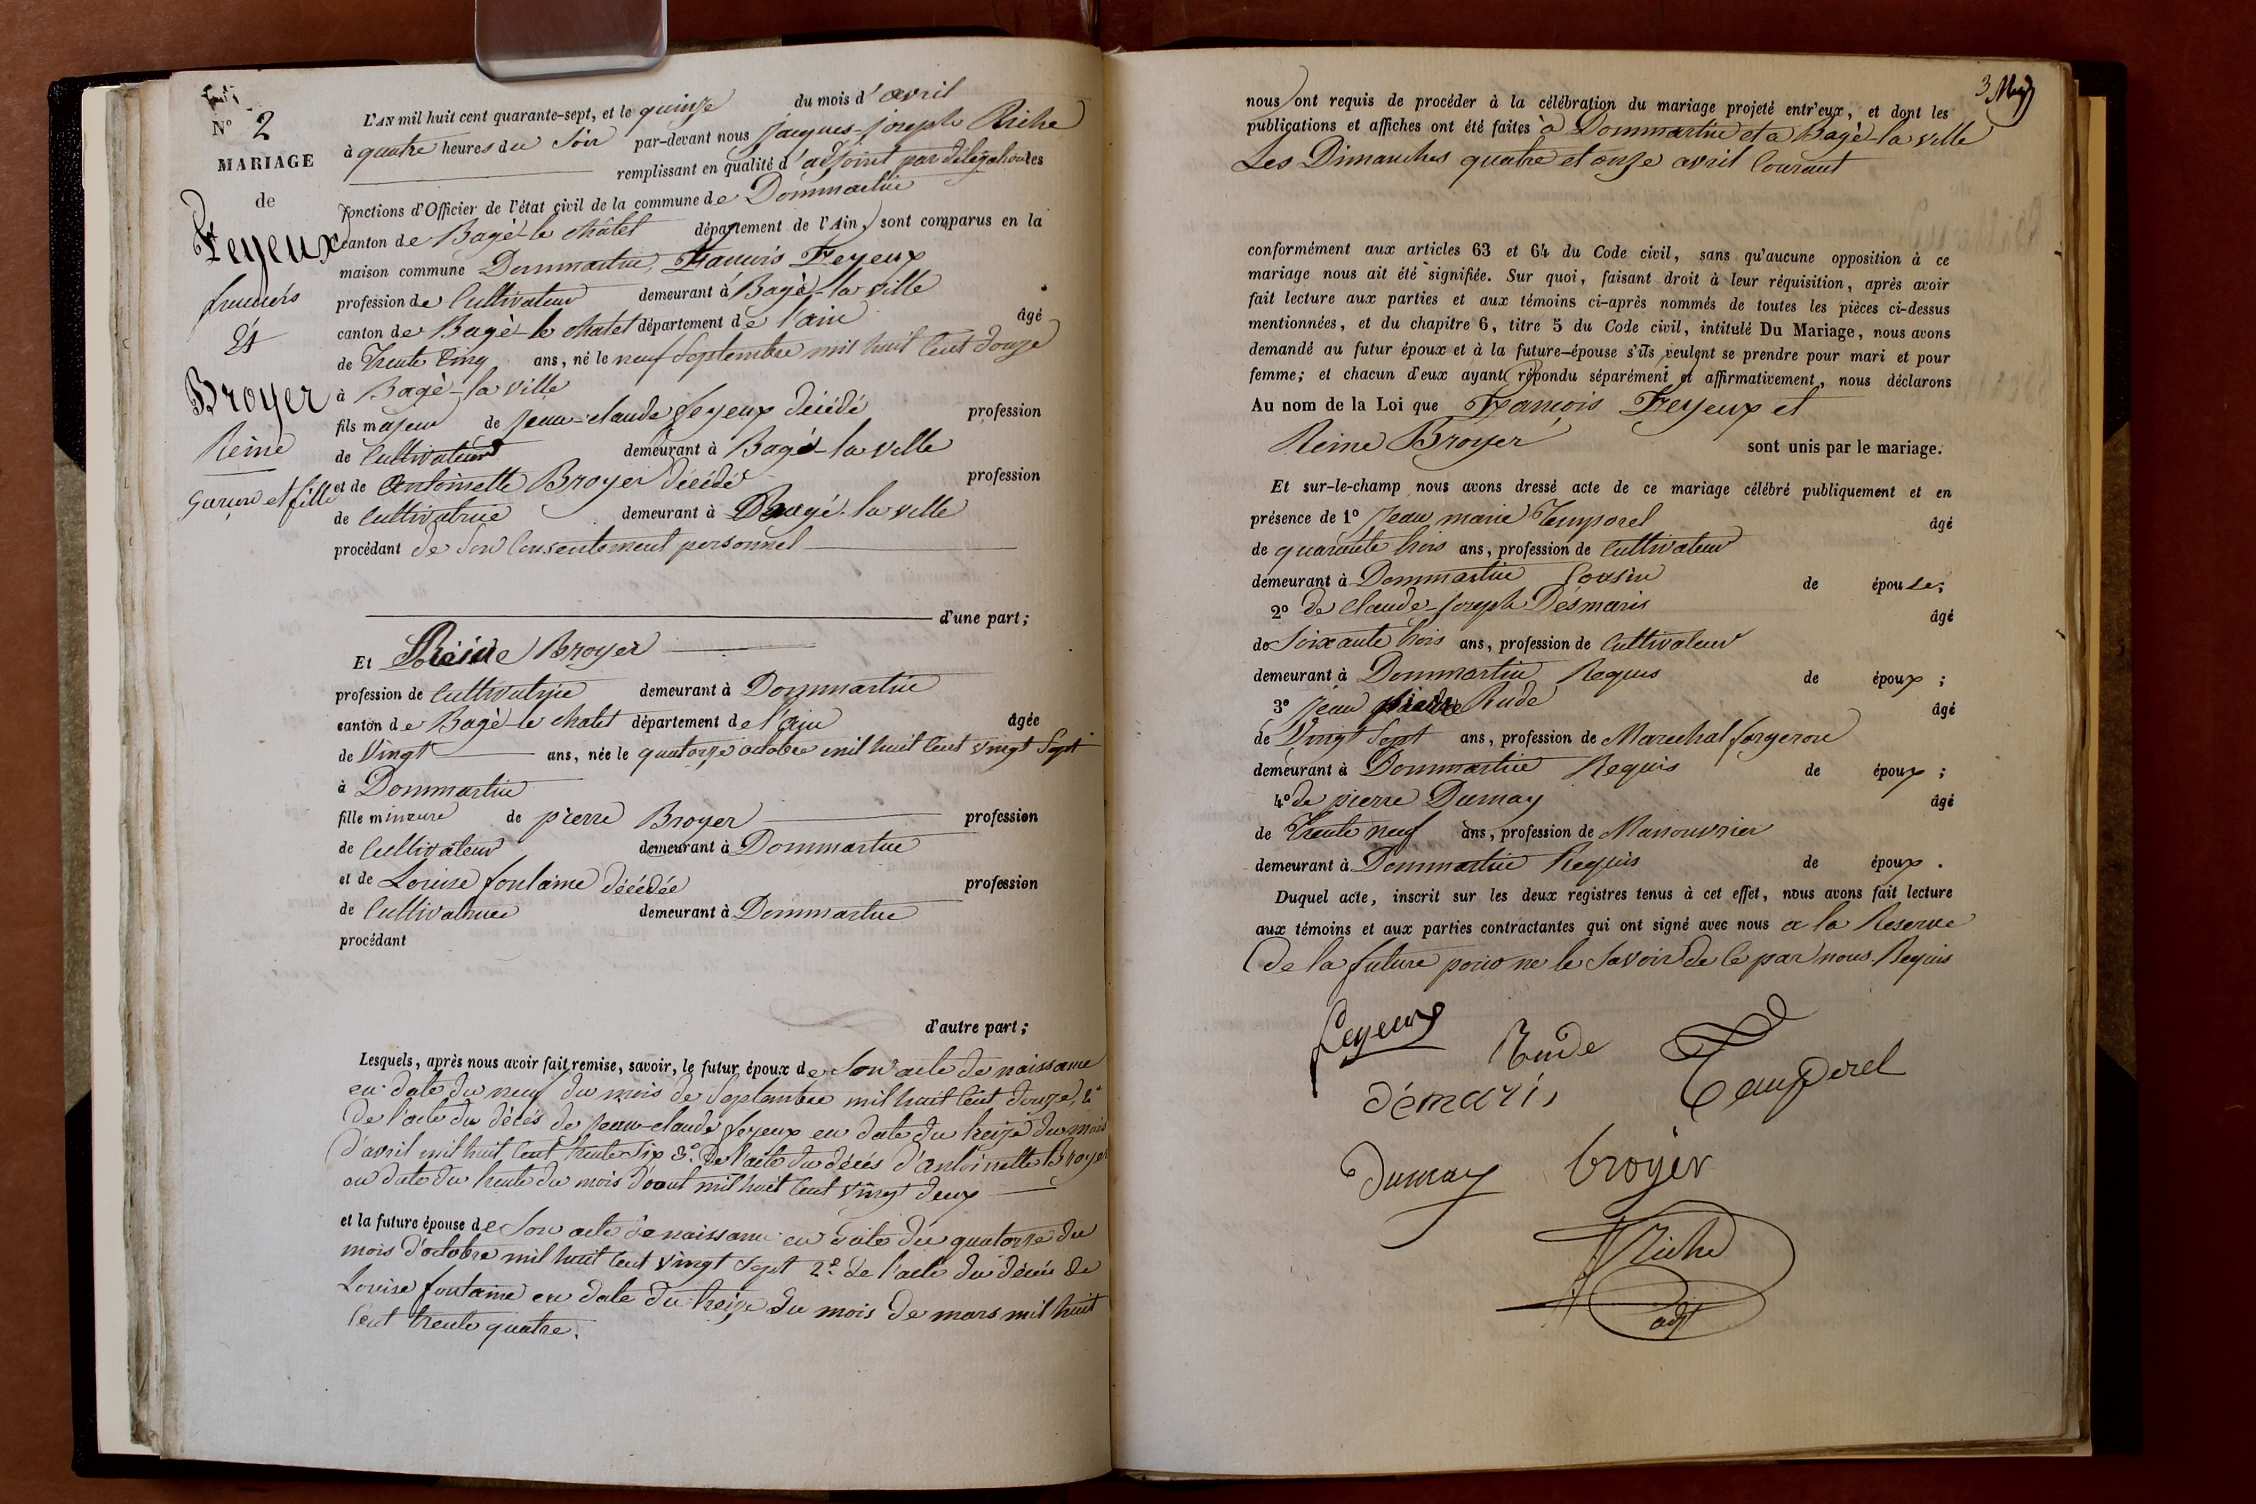 N° 2
MARIAGE
de
Feyeux
francois
Et
Broyer
Reine
Garçon et fille
L'AN mil huit cent quarante-sept, et le quinze du mois d'avril
à quatre heures du Soir par-devant nous Jacques-Joseph Riche
remplissant en qualité d'adjoint par délégation les
fonctions d'Officier de l'état civil de la commune de Dommartin
canton de Bagé-le châtel département de l'Ain, sont comparus en la
maison commune Dommartin, François Feyeux
profession de Cultivateur demeurant à Bagé-la ville
canton de Bagé-le chatel département de l'ain âgé
de Trente Cinq ans, né le neuf Septembre mil huit Cent douze
à Bagé-la ville
fils majeur de Jean-claude feyeux décédé profession
de Cultivateur demeurant à Bagé-la ville
et de Antoinette Broyer décédé profession
de Cultivatrice demeurant à Bagé-la ville
procédant de Son Consentement personnel
d'une part;
Et Reine Broyer
profession de Cultivatrice demeurant à Dommartin
canton de Bagé-le chatel département de l'ain âgée
de Vingt ans, née le quatorze octobre mil huit Cent vingt Sept
à Dommartin
fille mineure de pierre Broyer profession
de Cultivateur demeurant à Dommartin
et de Louise fontaine décédée profession
de Cultivatrice demeurant à Dommartin
procédant
d'autre part;
Lesquels, après nous avoir fait remise, savoir, le futur époux de Son acte de naissance
en date du neuf du mois de Septembre mil huit Cent douze, 2°
De l'acte du décés de Jean-claude feyeux en date du treize du mois
D'avril mil huit Cent trente Six 3°. De l'acte du décés d'antoinette Broyer
en date du trente du mois d'aout mil huit Cent vingt deux
et la future épouse de Son acte de naissance en date du quatorze du
mois d'octobre mil huit Cent vingt Sept 2°. de l'acte du décés de
Louise fontaine en date du treize du mois de mars mil huit
Cent trente quatre.
nous ont requis de procéder à la célébration du mariage projeté entr'eux, et dont les
publications et affiches ont été faites à Dommartin et à Bagé-la ville
Les Dimanches quatre et onze avril Courant
conformément aux articles 63 et 64 du Code civil, sans qu'aucune opposition à ce
mariage nous ait été signifiée. Sur quoi, faisant droit à leur réquisition, après avoir
fait lecture aux parties et aux témoins ci-après nommés de toutes les pièces ci-dessus
mentionnées, et du chapitre 6, titre 5 du Code civil, intitulé Du Mariage, nous avons
demandé au futur époux et à la future-épouse s'ils veulent se prendre pour mari et pour
femme; et chacun d'eux ayant répondu séparément et affirmativement, nous déclarons
Au nom de la Loi que François Feyeux et
Reine Broyer sont unis par le mariage.
Et sur-le-champ nous avons dressé acte de ce mariage célébré publiquement et en
présence de 1° Jean marie Temporel âgé
de quarante trois ans, profession de Cultivateur
demeurant à Dommartin Cousin de épouse;
2° de Claude-Joseph Desmaris âgé
de Soixante trois ans, profession de Cultivateur
demeurant à Dommartin Requis de époux;
3° Jean pierre Rude âgé
de Vingt Sept ans, profession de Marechal forgeron
demeurant à Dommartin Requis de époux;
4° de pierre Dumay âgé
de Trente neuf ans, profession de Manouvrier
demeurant à Dommartin Requis de époux.
Duquel acte, inscrit sur les deux registres tenus à cet effet, nous avons fait lecture
aux témoins et aux parties contractantes qui ont signé avec nous a la Reserve
De la future pour ne le Savoir de Ce par nous Requis
feyeux
Rude
Temporel
démaris
Dumay
broyer
Riche
adj